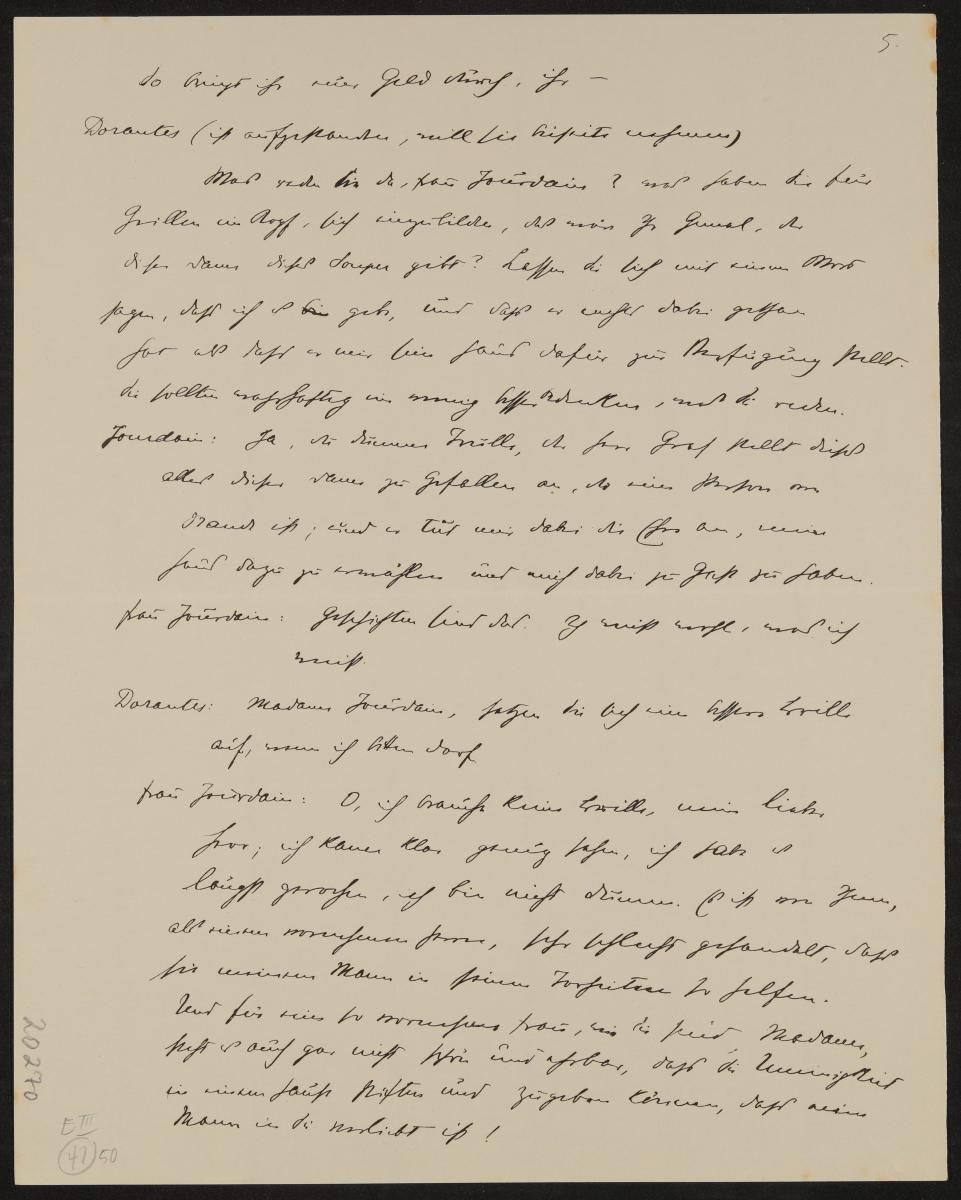 5.
So bringt ihr euer Geld durch, ihr —
Dorantes (ist aufgestanden, will sie beiseite nehmen)
Was reden Sie da, Frau Jourdain? was haben Sie für
Grillen im Kopf, sich einzubilden, das wäre Ihr Gemahl, der
dieser Dame dieses Souper gibt? Lassen Sie sich mit einem Wort
sagen, dass ich es gebe, und dass er nichts dabei gethan
hat als dass er mir sein Haus dafür zur Verfügung stellt.
Sie sollten wahrhaftig ein wenig besser bedenken, was Sie reden.
Jourdain: Ja, du dumme Trulle, der Herr Graf stellt dieses
alles dieser Dame zu Gefallen an, die eine Person von
Stande ist; und er tut mir dabei die Ehre an, mein
Haus dazu zu erwählen und mich dabei zu Gast zu haben.
Frau Jourdain: Geschichten sind das. Ich weiss wohl, was ich
weiss.
Dorantes: Madame Jourdain, setzen Sie sich eine bessere Brille
auf, wenn ich bitten darf
Frau Jourdain: O, ich brauche keine Brille, mein lieber
Herr; ich kann klar genug sehen, ich habe es
längst gerochen, ich bin nicht dumm. Es ist von Ihnen,
als einem vornehmen Herrn, sehr schlecht gehandelt, dass
Sie meinem Mann in seinen Torheiten so helfen.
Und für eine so vornehme Frau, wie Sie sind, Madame,
steht es auch gar nicht schön und ehrbar, dass Sie Uneinigkeit
in einem Hause stiften und zugeben können, dass mein
Mann in Sie verliebt ist!
20270
E III
47 50